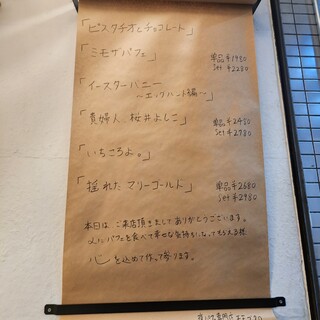 「ピスタチオとチョコレート」
「ミモザパフェ」
単品¥1980
Set ¥2280
「イースターバニー
〜エッグハント編〜」
「貴婦人 桜井よしこ」
単品¥2480
Set ¥2780
「いちころよ。」
「揺れた マリーゴールド」
単品¥2680
Set ¥2980
本日は ご来店頂きましてありがとうございます。
パフェを食べて幸せな気持ちになってもらえる様
心を込めて作って参ります。